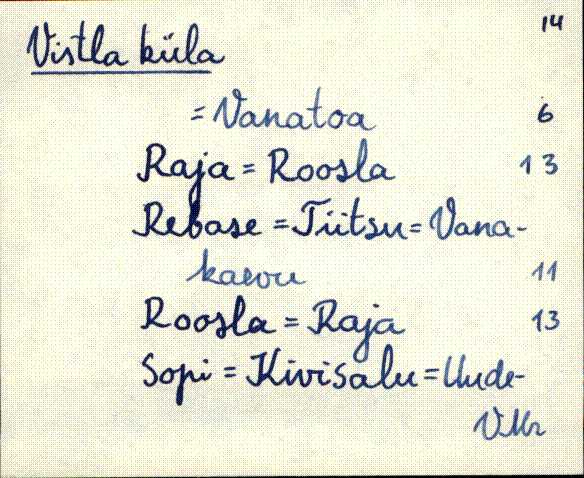 14
Vistla küla
= Vanatoa 6
Raja = Roosla 13
Rebase = Tiitsu = Vana-
kaevu 11
Roosla = Raja 13
Sopi = Kivisalu = Uude-
V.Mr